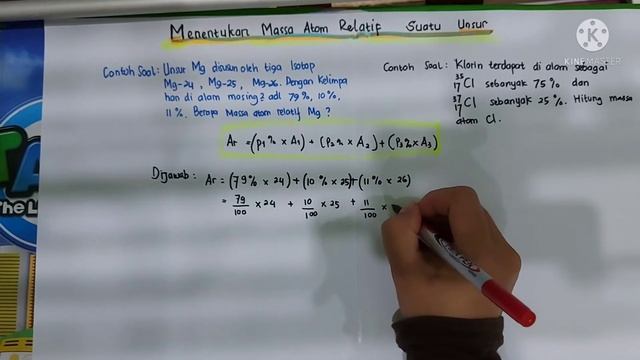 Menentukan Massa Atom Relatif Suatu Unsur
KINEMASTER
Contoh Soal: Unsur Mg disusun oleh tiga Isotop
Mg-24, Mg-25, Mg-26. Dengan Kelimpa
han di alam masing² adl 79%, 10%,
11%. Berapa Massa atom relatif Mg?
Contoh Soal: Klorin terdapat di alam sebagai
³⁵₁₇Cl sebanyak 75% dan
³⁷₁₇Cl sebanyak 25%. Hitung massa
atom Cl.
Ar = (P₁% x A₁) + (P₂% x A₂) + (P₃% x A₃)
Dijawab: Ar = (79% x 24) + (10% x 25) + (11% x 26)
= 79/100 x 24 + 10/100 x 25 + 11/100 x